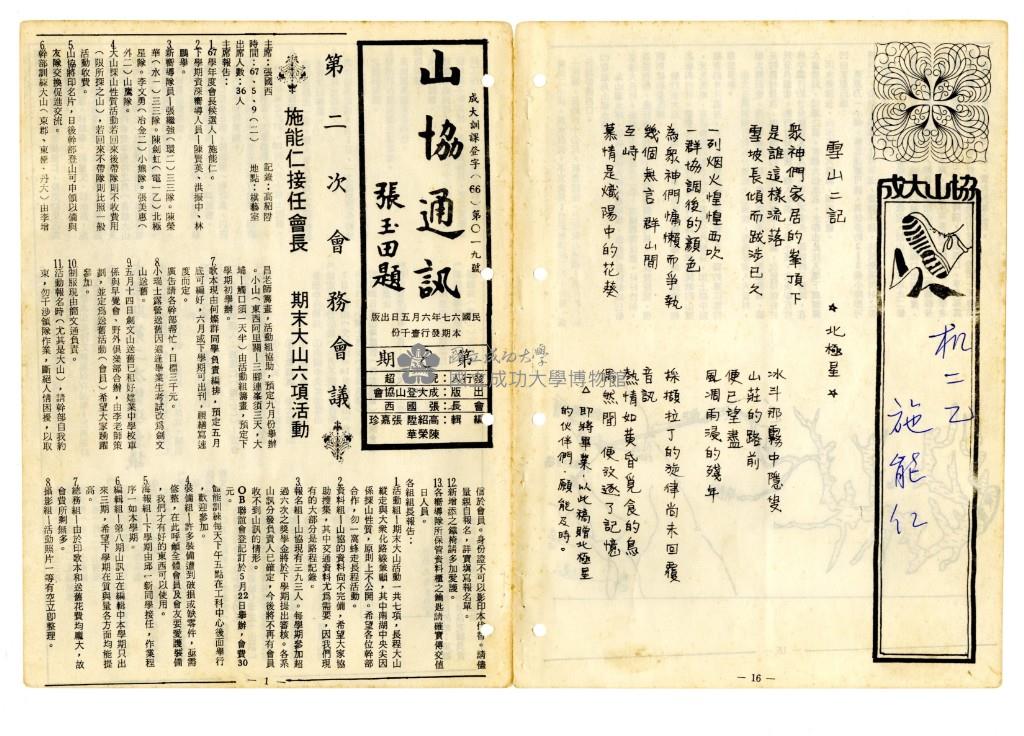 成大訓課登字（66）第〇一九號
山協通訊
張玉田題
民國六十七年六月五日出版
本期發行壹千份
第2期
出版：成大登山協會
會長：張國西
第二次會務會議
施能仁接任會長
期末大山六項活動
主席：張國西
記錄：高紹陞
時間：67、5、9（二）
地點：康藝室
出席人數：36人
主席報告：
1 67學年度會長候選人─施能仁。
2 下學期資深嚮導人員─陳賢英、洪振中、林
鵬擧。
3 新嚮導隊員─張繼強（環二）三三隊。陳榮
華（水一）三三隊。陳劍虹（電一乙）北極
星隊。李文勇（冶金二）小熊隊。張美惠（
外二）山鷹隊。
4 大山探山性質活動若回來後帶隊則不收費用
（限所探之山），若回來不帶隊則比照一般
活動收費。
5 山協將印名片，日後幹部登山可申領以備與
友隊交換促進交流。
7 歌本現由何燦群同學負責編排，預定五月
底可編好，六月或下學期可出刊，經續寫速
度而定。
廣告請各幹部幫忙，目標三千元。
9 五月十四日創文山送舊已租好建業中學校車
係與早覺會、野外俱樂部合辦，由李老師策
劃，並定為送舊活動（會員）希望大家踴躍
參加。
10 制服現由簡文通負責。
11 活動報名時（尤其是大山），請幹部自我約
束，勿干涉領隊作業，斷絕人情困擾，以取
信於會員。身份證不可以影印本代替。請儘
量親自報名，詳實填寫報名單。
12 新增添之鐵椅請多加愛護。
13 各嚮導隊所保管資料櫃之鑰匙請確實傳交值
日人員。
各組組長報告：
1 活動組─期末大山活動一共七項，長程大山
縱走與大衆化路線兼顧，其中南湖中央尖因
係探山性質，原則上不公開。希望各位幹部
合作，勿一窩蜂走長程活動。
2 資料組─山協的資料尚不完備，希望大家協
助搜集，其中交通資料尤爲需要，因我們現
有的大部分是路程記錄。
3 報名組─山協現有三九三人。每學期參加超
過六次之獎學金將於下學期提出審核。各系
山訊分發負責人已確定，今後將不再有會員
收不到山訊的情形。
OB聯誼會登記訂於5月22日舉辦，會費30
元。
體能訓練每天下午五點在工科中心後面舉行
，歡迎參加。
4 裝備組─許多裝備遭到破損或缺零件，亟需
修整，在此呼籲全體會員及會友要愛護裝備
，我們才有好的東西可以使用。
5 海報組─下學期由邱一新同學接任，作業程
序一如本學期。
6 編輯組─第八期山訊正在編輯中本學期只出
來三期，希望下學期在質與量各方面均能提
高。
7 總務組─由於印歌本和送舊花費均龐大，故
會費所剩無多。
8 攝影組─活動照片一等有空立即整理。
— 1 —
成大山協
机二乙 施能仁
雪山二記
☆北極星☆
眾神們家居的峯頂下
是誰這樣流落
雪坡長傾而跋涉已久
一列烟火惶惶西吹
一群協調後的顏色
為眾神們慵懶而爭執
幾個無言 群山間
互峙
慕情是熾陽中的花葵
冰斗那霧中隱隻
山莊的路前
便已望盡
風凋雨浸的殘年
採擷拉丁的旋律尚未回覆
音訊
熱情如黃昏覓食的鳥
偶然間 便放逐了記憶
△即將畢業，以此稿贈北極星
的伙伴們，願能及時。
— 16 —
國立成功大學
國立成功大學博物館